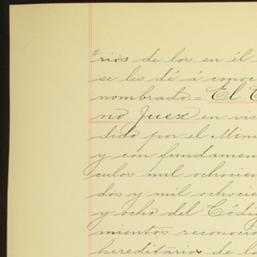 rios de los en él
se les dé á conoc
nombrado.= El C
no Juez en vis
dido por el Minis
y con fundamen
culos mil ochocien
dos y mil ochocie
y ocho del Códi
mientos reconocie
hereditario de lo